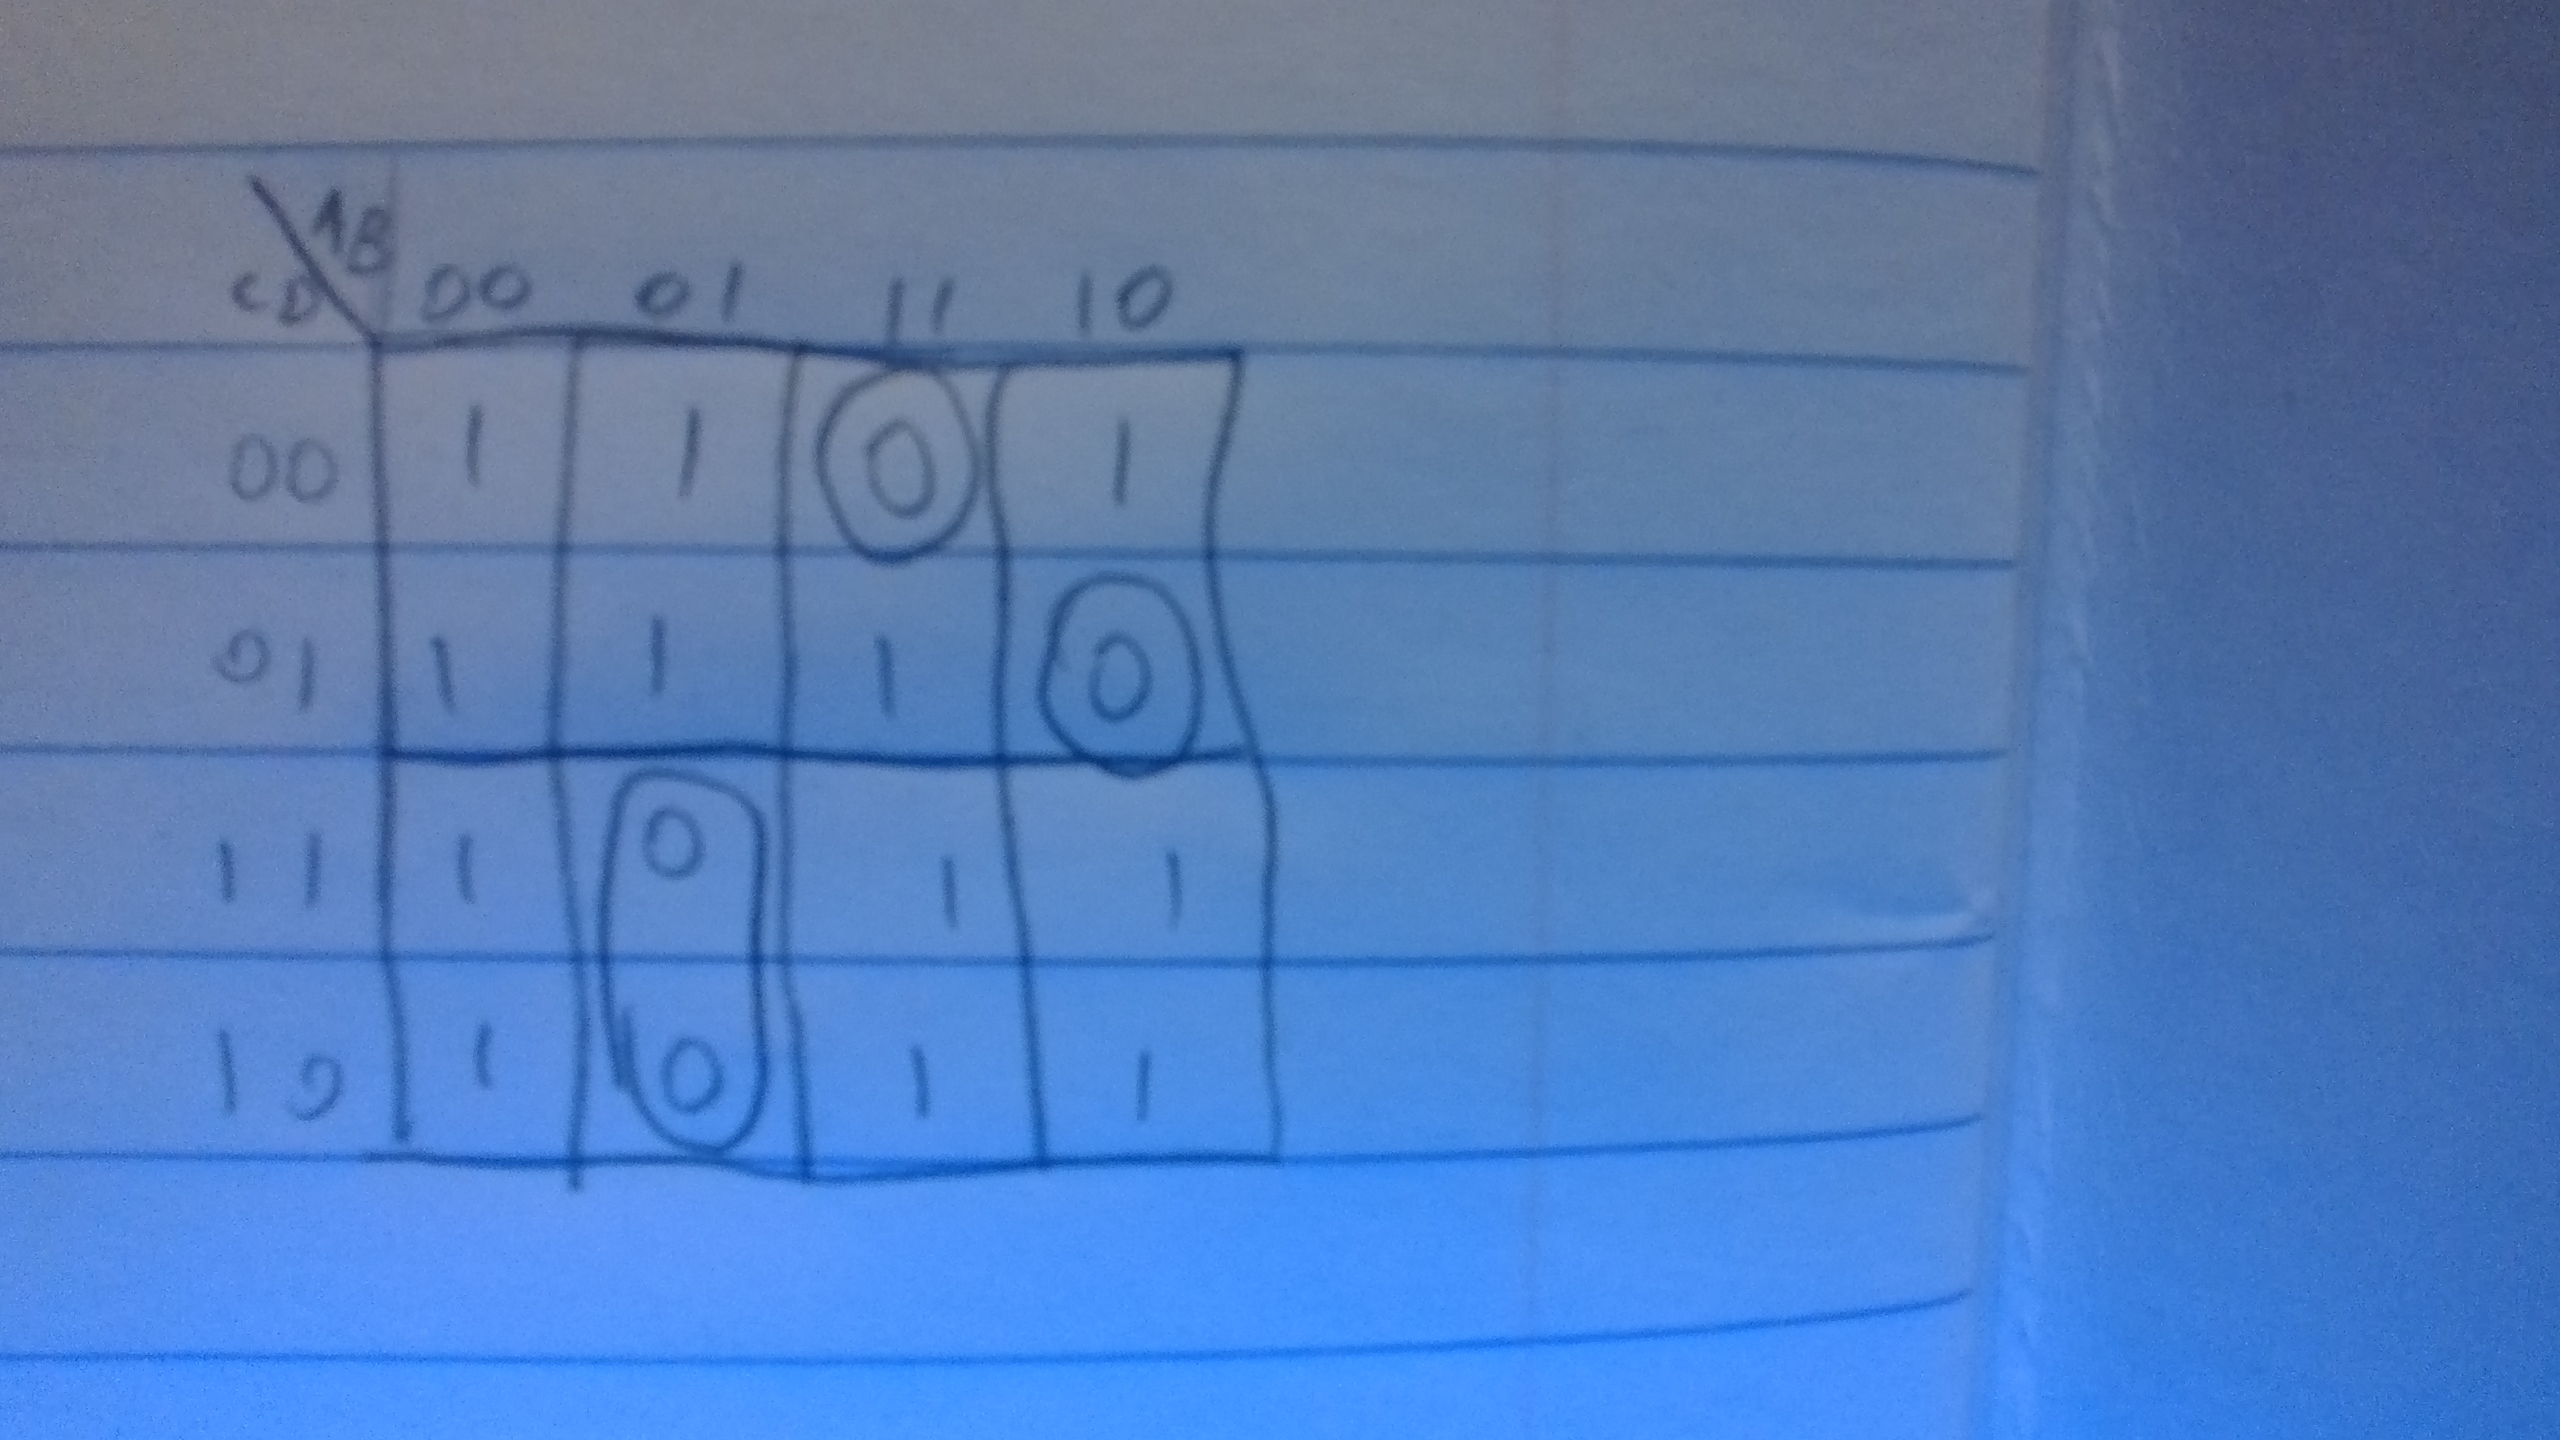 AB
CD 00 01 11 10
00 1 1 0 1
01 1 1 1 0
11 1 0 1 1
10 1 0 1 1